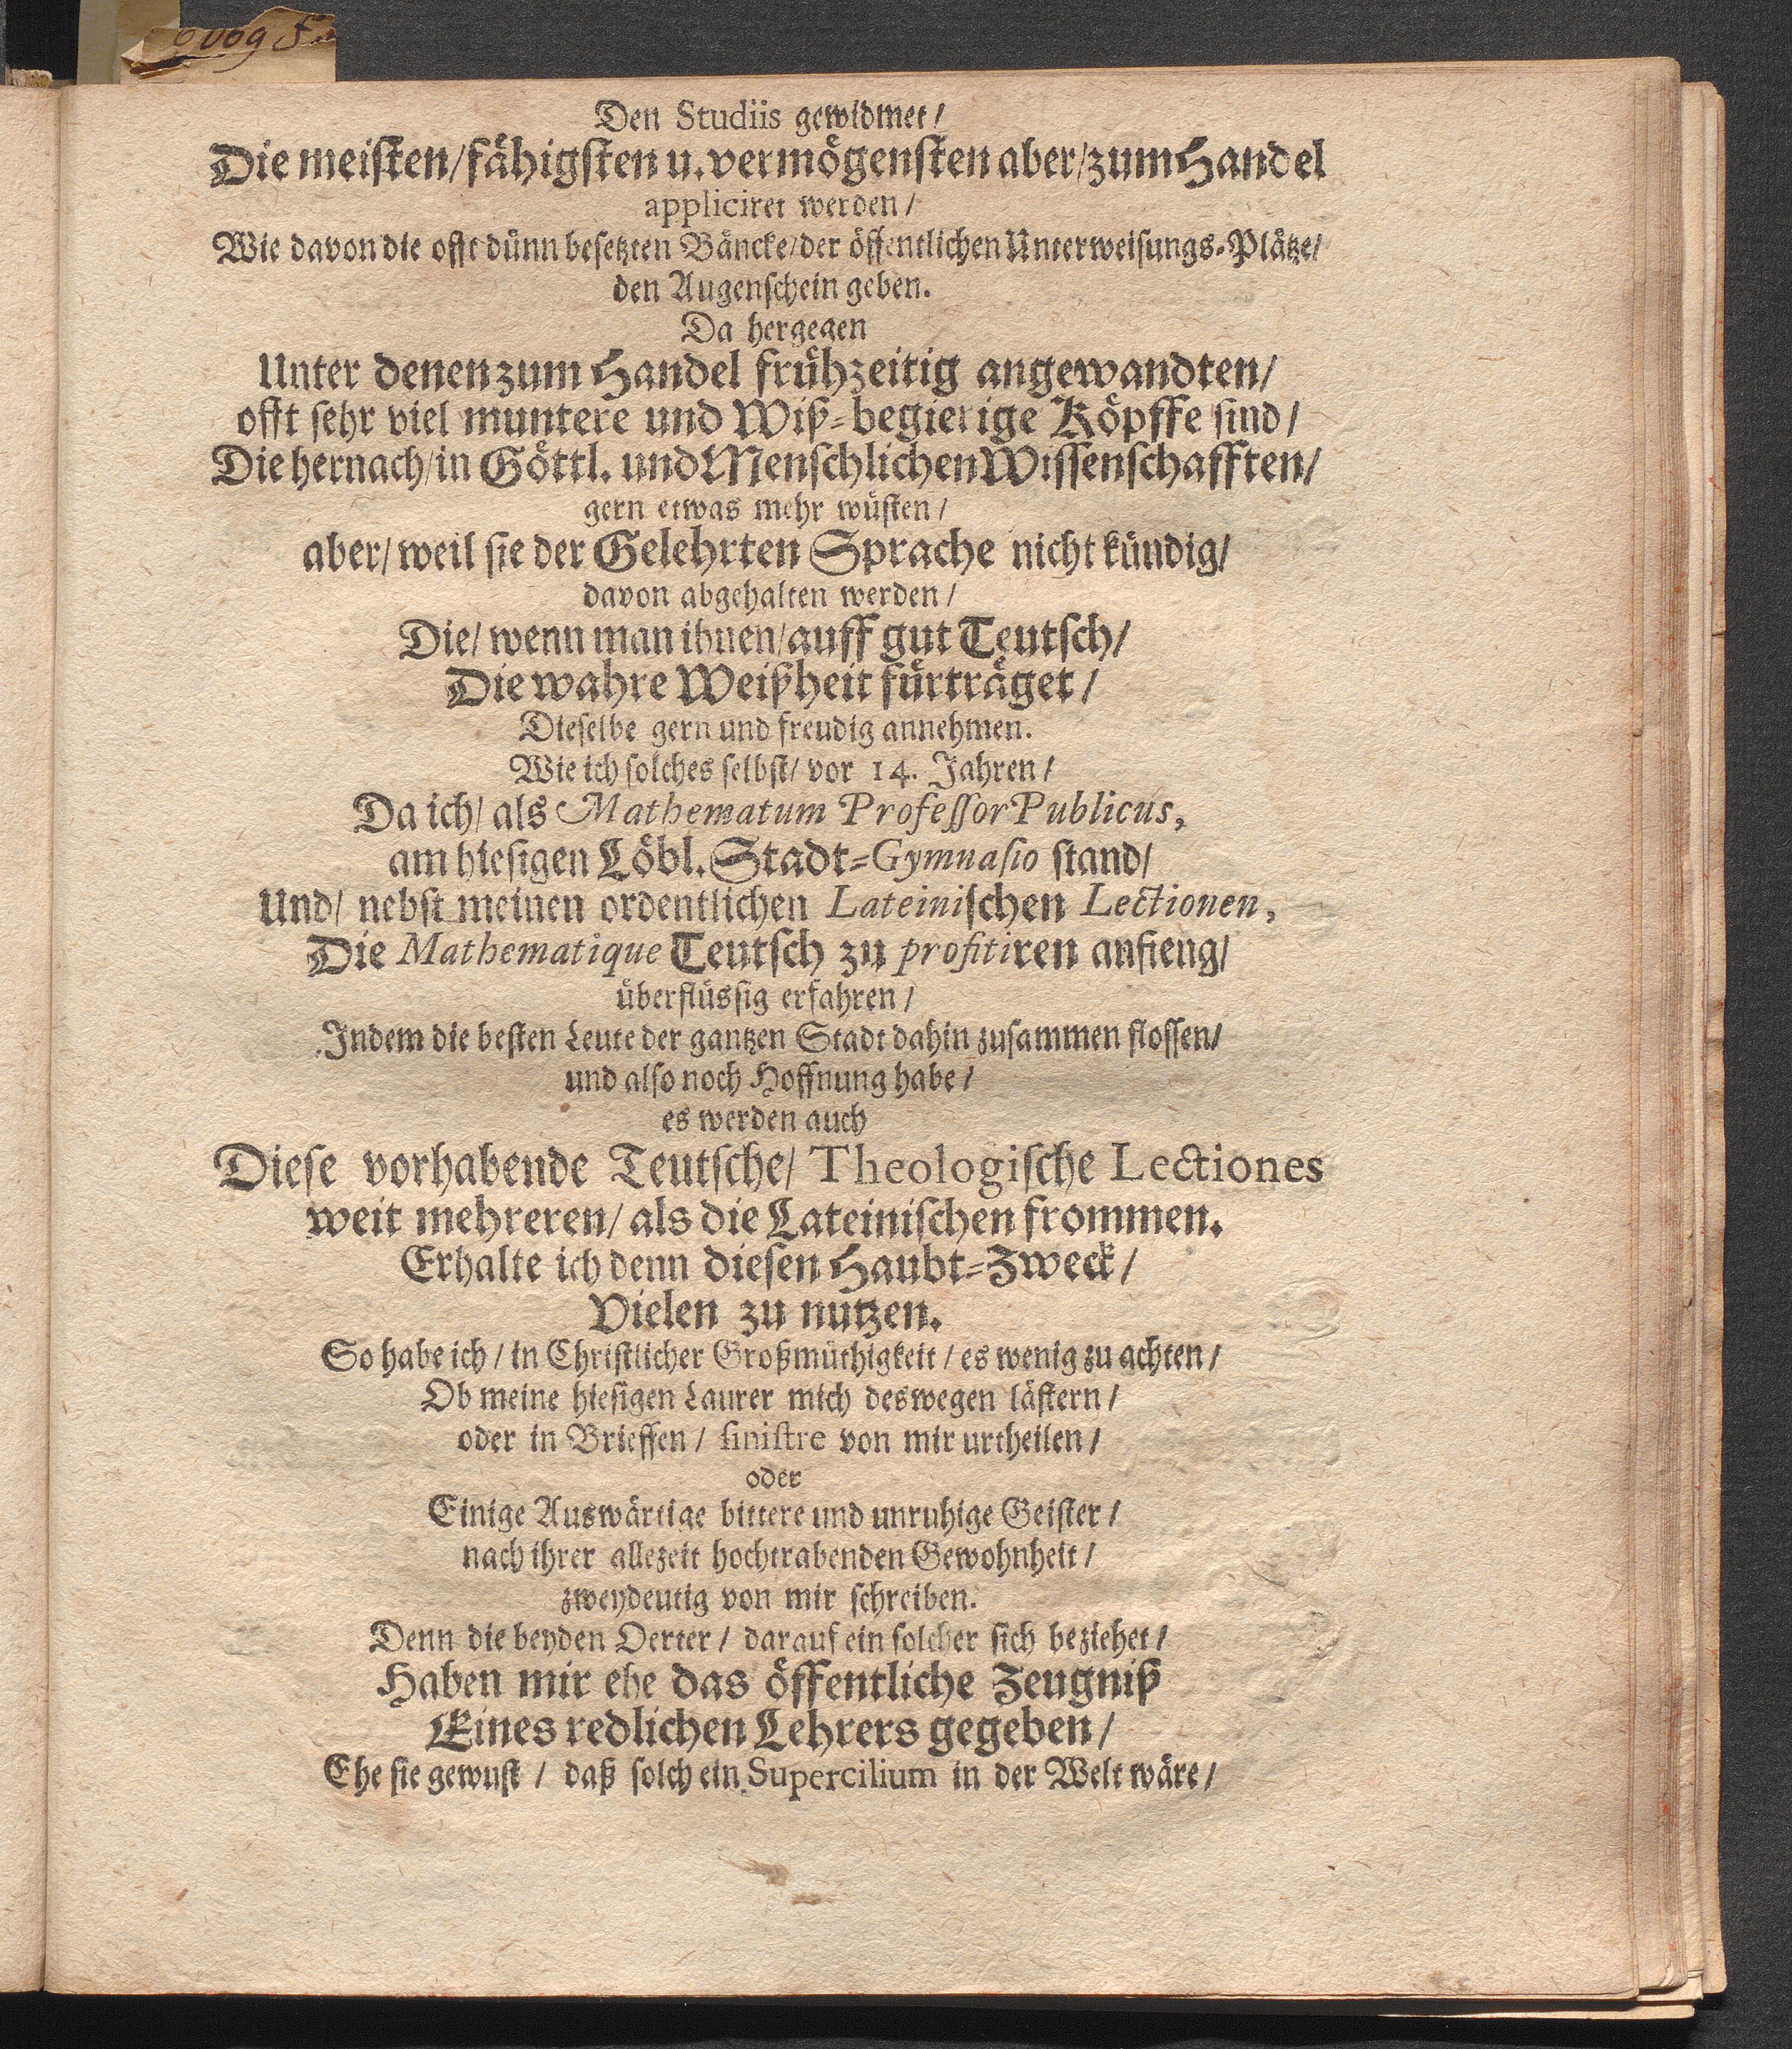 Den Studiis gewidmet/
Die meisten/fähigsten u. vermögensten aber/zum Handel
appliciret werden/
Wie davon die offt dünn besetzten Bäncke/der öffentlichen Unterweisungs-Plätze/
den Augenschein geben.
Da hergegen
Unter denen zum Handel frühzeitig angewandten/
offt sehr viel muntere und Wiß-begierige Köpffe sind/
Die hernach/in Göttl. und Menschlichen Wissenschafften/
gern etwas mehr wüsten/
aber/ weil sie der Gelehrten Sprache nicht kündig/
davon abgehalten werden/
Die/ wenn man ihnen/auff gut Teutsch/
Die wahre Weißheit fürträget/
Dieselbe gern und freudig annehmen.
Wie ich solches selbst/ vor 14. Jahren/
Da ich/ als Mathematum Professor Publicus,
am hiesigen Löbl. Stadt-Gymnasio stand/
Und/ nebst meinen ordentlichen Lateinischen Lectionen,
Die Mathematique Teutsch zu profitiren anfieng/
überflüssig erfahren/
Indem die besten Leute der gantzen Stadt dahin zusammen flossen/
und also noch Hoffnung habe/
es werden auch
Diese vorhabende Teutsche/ Theologische Lectiones
weit mehreren/ als die Lateinischen frommen.
Erhalte ich denn diesen Haubt-Zweck/
Vielen zu nutzen.
So habe ich/ in Christlicher Großmüthigkeit/ es wenig zu achten/
Ob meine hiesigen Laurer mich deswegen lästern/
oder in Brieffen/ sinistre von mir urtheilen/
oder
Einige Auswärtige bittere und unruhige Geister/
nach ihrer allezeit hochtrabenden Gewohnheit/
zweydeutig von mir schreiben.
Denn die beyden Oerter/ darauf ein solcher sich beziehet/
Haben mir ehe das öffentliche Zeugniß
Eines redlichen Lehrers gegeben/
Ehe sie gewust/ daß solch ein Supercilium in der Welt wäre/